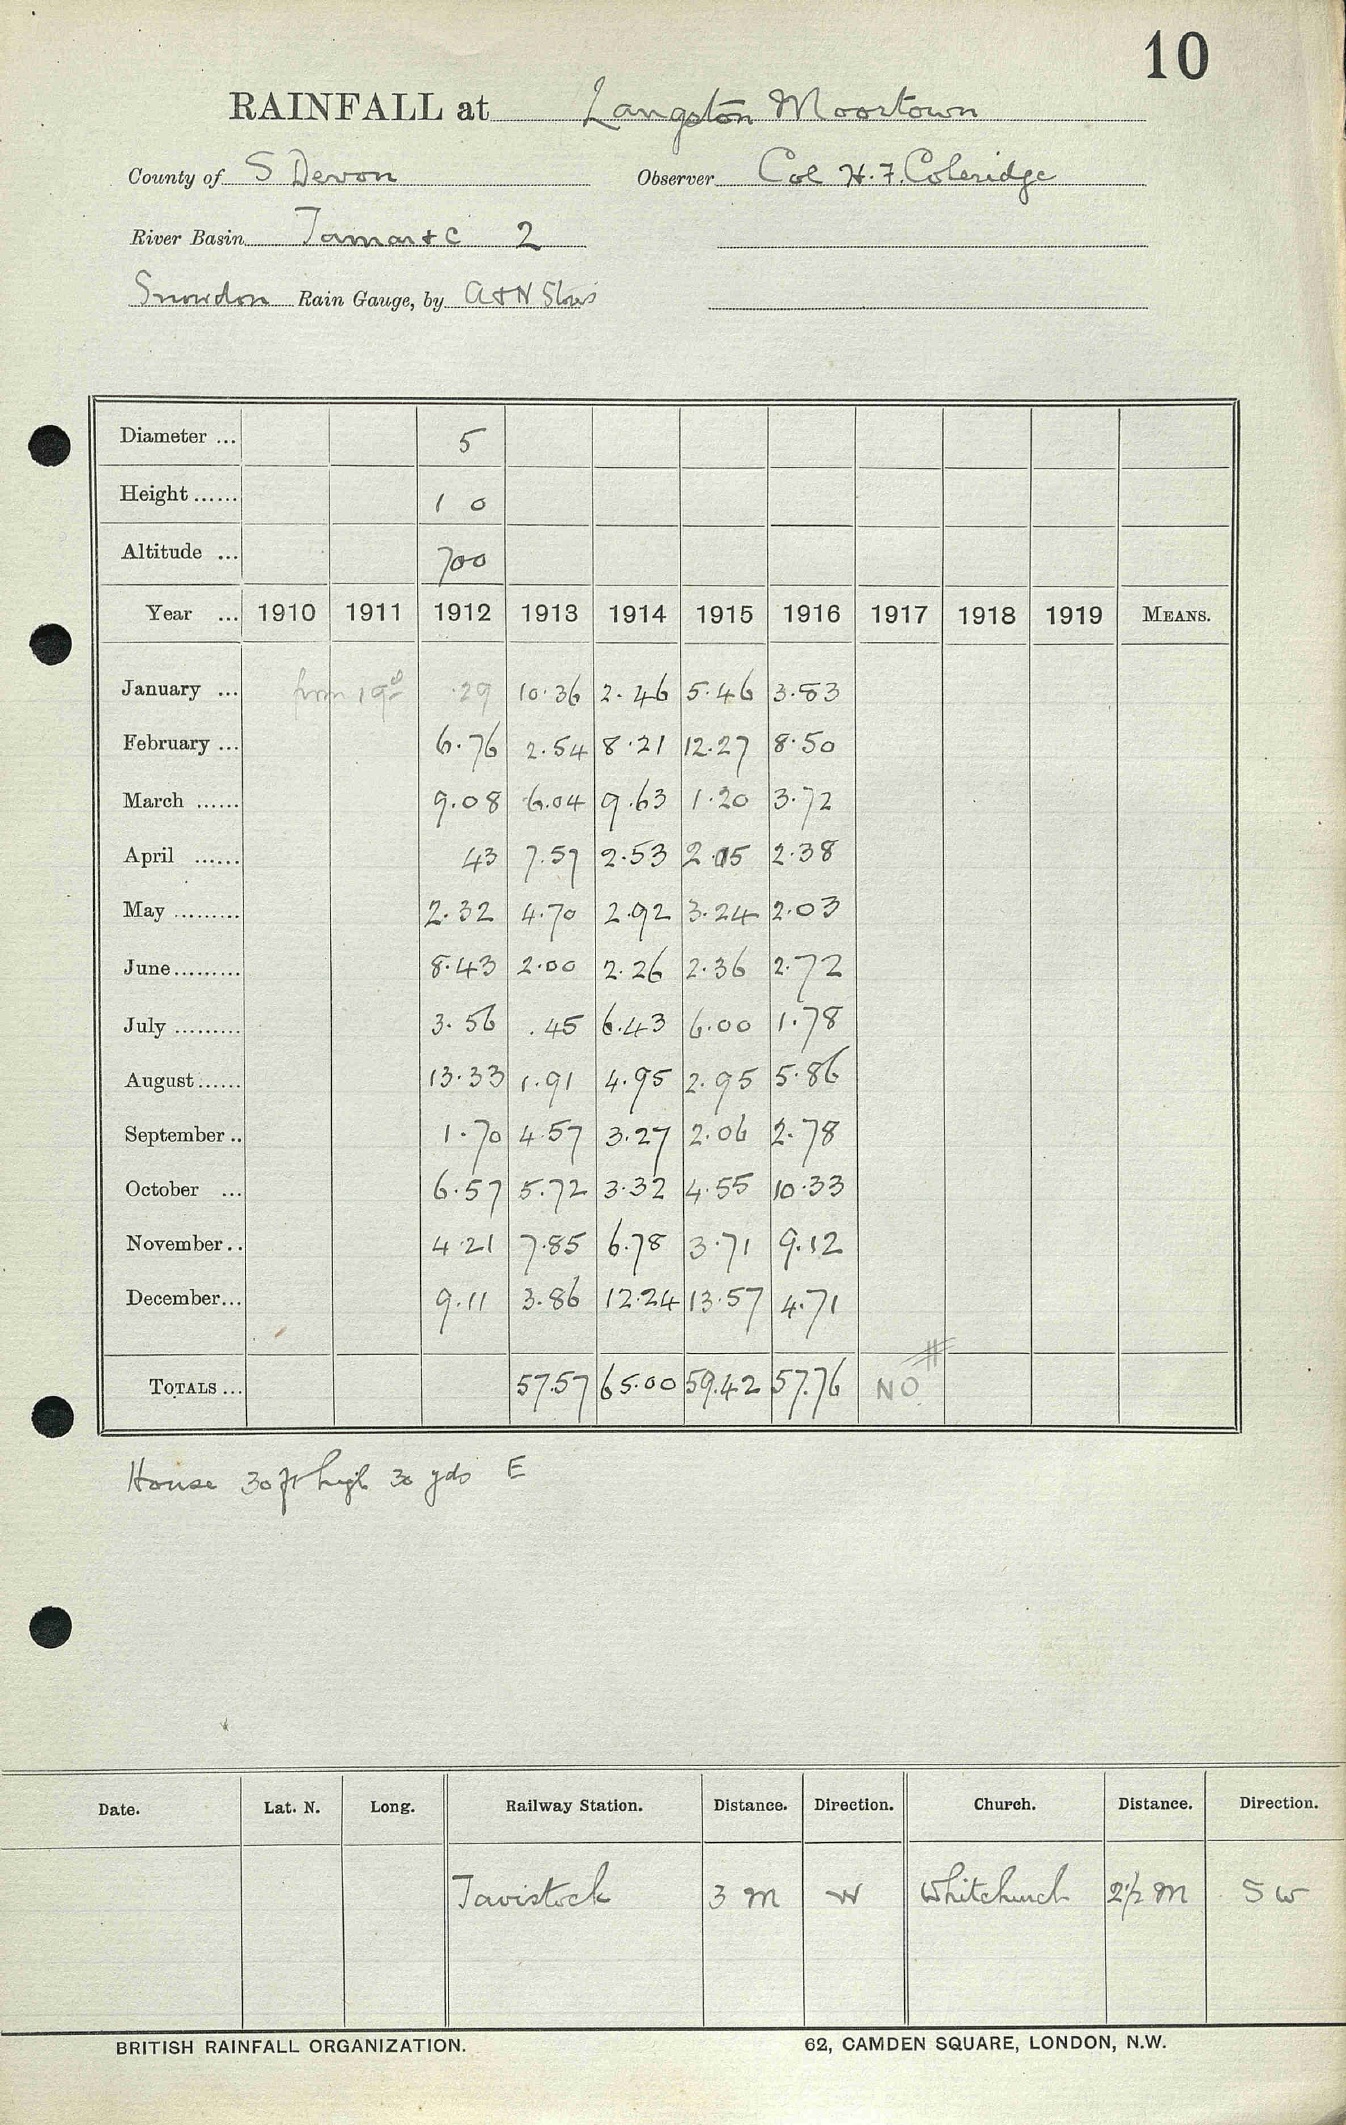 10
RAINFALL at Langston Moortown
County of S Devon Observer Col H. F. Coleridge
River Basin Tamar &c 2
Snowdon Rain Gauge, by A & N Stores
Diameter ... 5
Height ...... 1 0
Altitude ... 700
Year ... 1910 1911 1912 1913 1914 1915 1916 1917 1918 1919 MEANS.
January ... from 19th .29 10.36 2.46 5.46 3.83
February ... 6.76 2.54 8.21 12.27 8.50
March ...... 9.08 6.04 9.63 1.20 3.72
April ...... 43 7.57 2.53 2.15 2.38
May ......... 2.32 4.70 2.92 3.24 2.03
June......... 8.43 2.00 2.26 2.36 2.72
July ......... 3.56 .45 6.43 6.00 1.78
August...... 13.33 1.91 4.95 2.95 5.86
September .. 1.70 4.57 3.27 2.06 2.78
October ... 6.57 5.72 3.32 4.55 10.33
November.. 4.21 7.85 6.78 3.71 9.12
December... 9.11 3.86 12.24 13.57 4.71
TOTALS ... 57.57 65.00 59.42 57.76 NO #
House 30 ft high 30 yds E
Date. Lat. N. Long. Railway Station. Distance. Direction. Church. Distance. Direction.
Tavistock 3 m W Whitchurch 2 1/2 m SW
BRITISH RAINFALL ORGANIZATION. 62, CAMDEN SQUARE, LONDON, N.W.